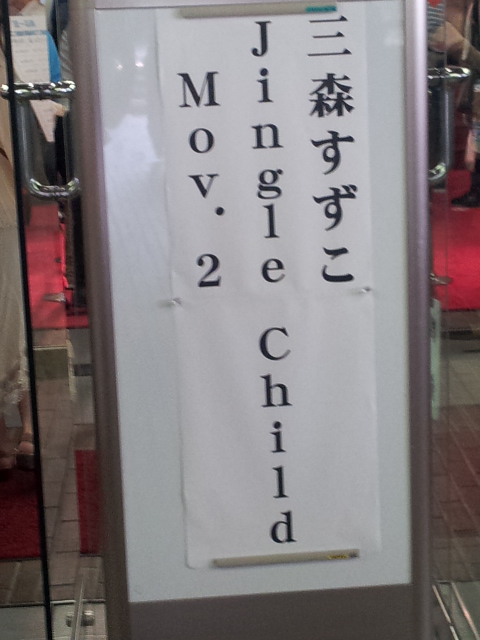 三森すずこ
Jingle Child
Mov. 2